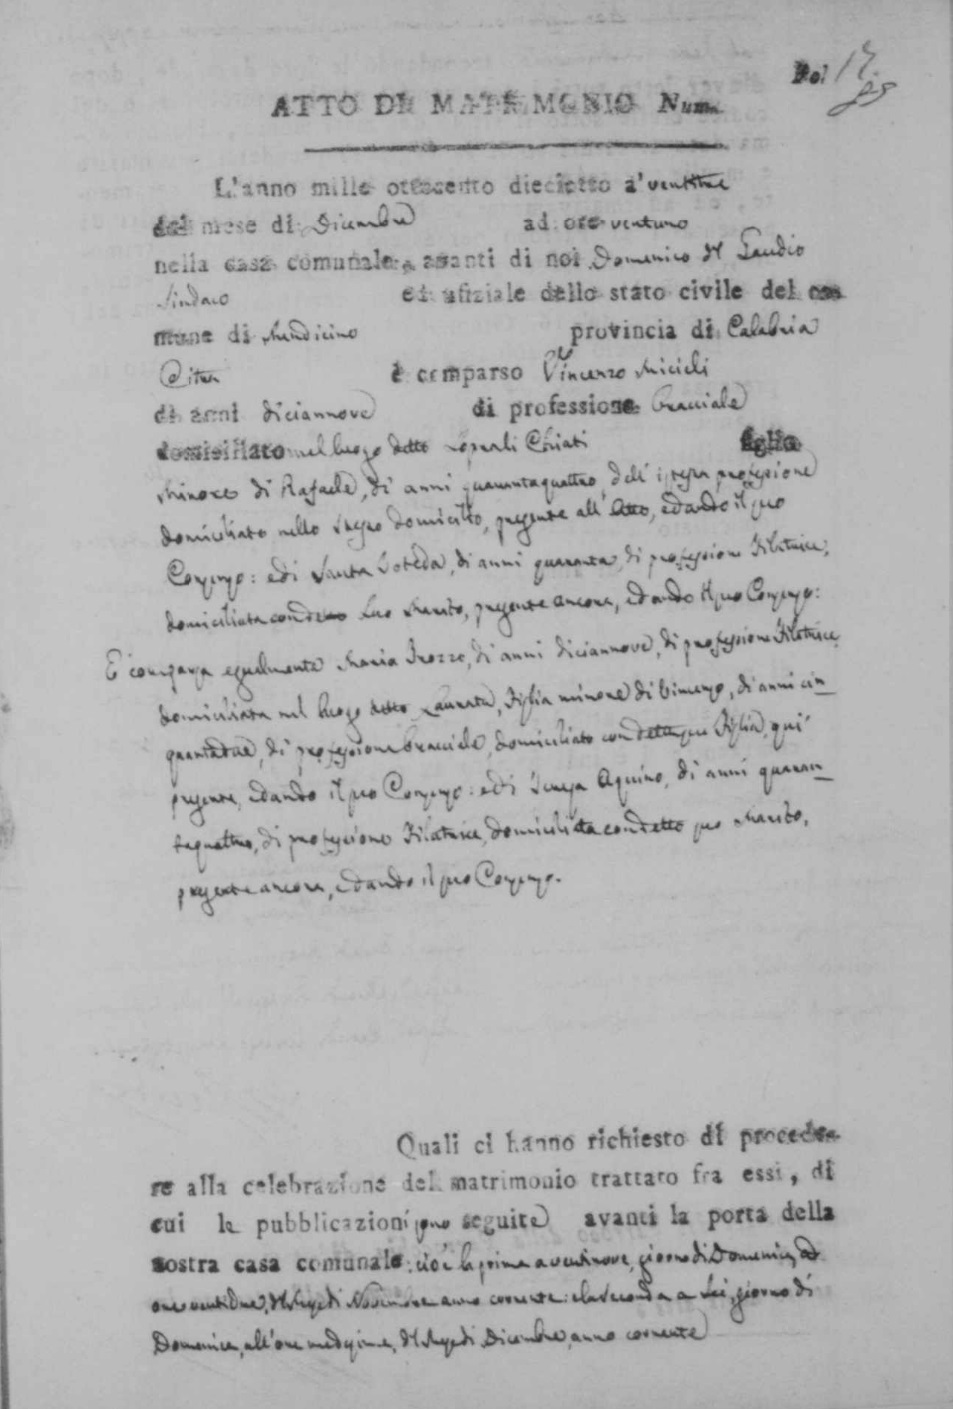 Fol 17.
ATTO DI MATRIMONIO Num.
L'anno mille ottocento dieciotto a' ventitre
del mese di Dicembre ad ore ventuno
nella casa comunale, avanti di noi Domenico del Gaudio
Sindaco ed ufiziale dello stato civile del co-
mune di Mendicino provincia di Calabria
Citra è comparso Vincenzo Micieli
di anni diciannove di professione bracciale
domiciliato nel luogo detto Chiati figlio
Minore di Rafaele, di anni quarantaquattro, dell' istessa professione
domiciliato nello stesso domicilio, presente all' Atto, e dando il suo
Consenso: e di Santa , di anni quaranta, di professione Filatrice,
domiciliata con detto suo Marito, presente ancora, e dando il suo Consenso:
E' comparsa egualmente Maria , di anni diciannove, di professione Filatrice,
domiciliata nel luogo detto , Figlia minore di Vincenzo, di anni cin-
quantadue, di professione bracciale, domiciliato con detta sua Figlia, qui
presente, e dando il suo Consenso: e di Teresa Aquino, di anni quaran-
taquattro, di professione Filatrice, domiciliata con detto suo Marito,
presente ancora, e dando il suo Consenso.
Quali ci hanno richiesto di procede-
re alla celebrazione del matrimonio trattato fra essi, di
cui le pubblicazioni sono seguite avanti la porta della
nostra casa comunale, cioè la prima a ventinove, giorno di Domenica, ad
ore ventidue, del Mese di Novembre anno corrente: e la seconda a Sei, giorno di
Domenica, all'ore medesime, del Mese di Dicembre, anno corrente